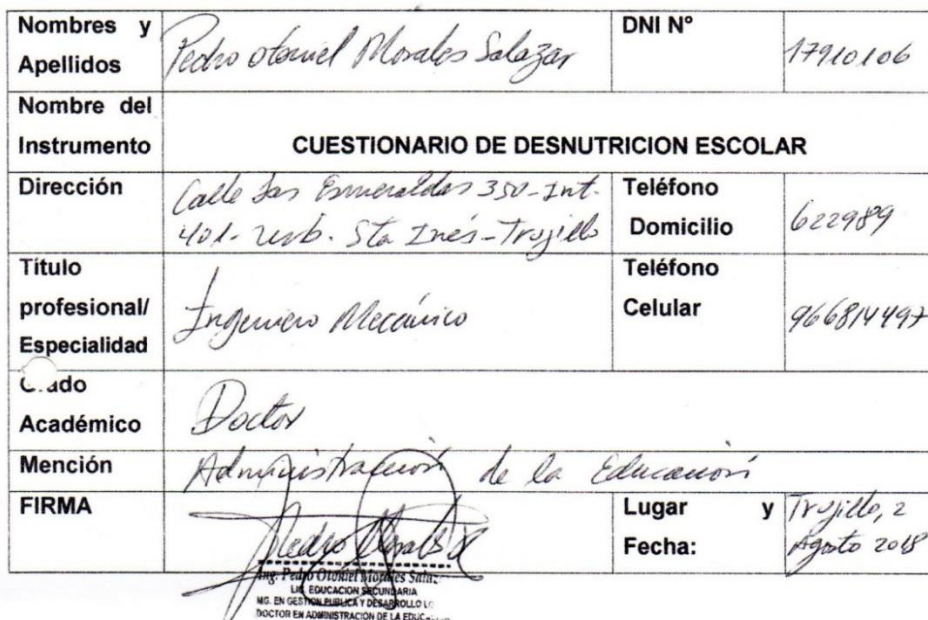 Nombres y Apellidos
Pedro Otoniel Morales Salazar
DNI N°
17910106
Nombre del Instrumento
CUESTIONARIO DE DESNUTRICION ESCOLAR
Dirección
Calle Las Esmeraldas 350-Int.
401- urb. Sta Inés-Trujillo
Teléfono Domicilio
622989
Título profesional/ Especialidad
Ingeniero Mecánico
Teléfono Celular
966814497
Académico
Doctor
Mención
Administración de la Educación
FIRMA
Pedro Morales S
Ing. Pedro Otoniel Morales Salaz
LIC. EDUCACION SECUNDARIA
MG. EN GESTION PUBLICA Y DESARROLLO LO
DOCTOR EN ADMINISTRACION DE LA EDUC
Lugar y Fecha:
Trujillo, 2
Agosto 2018